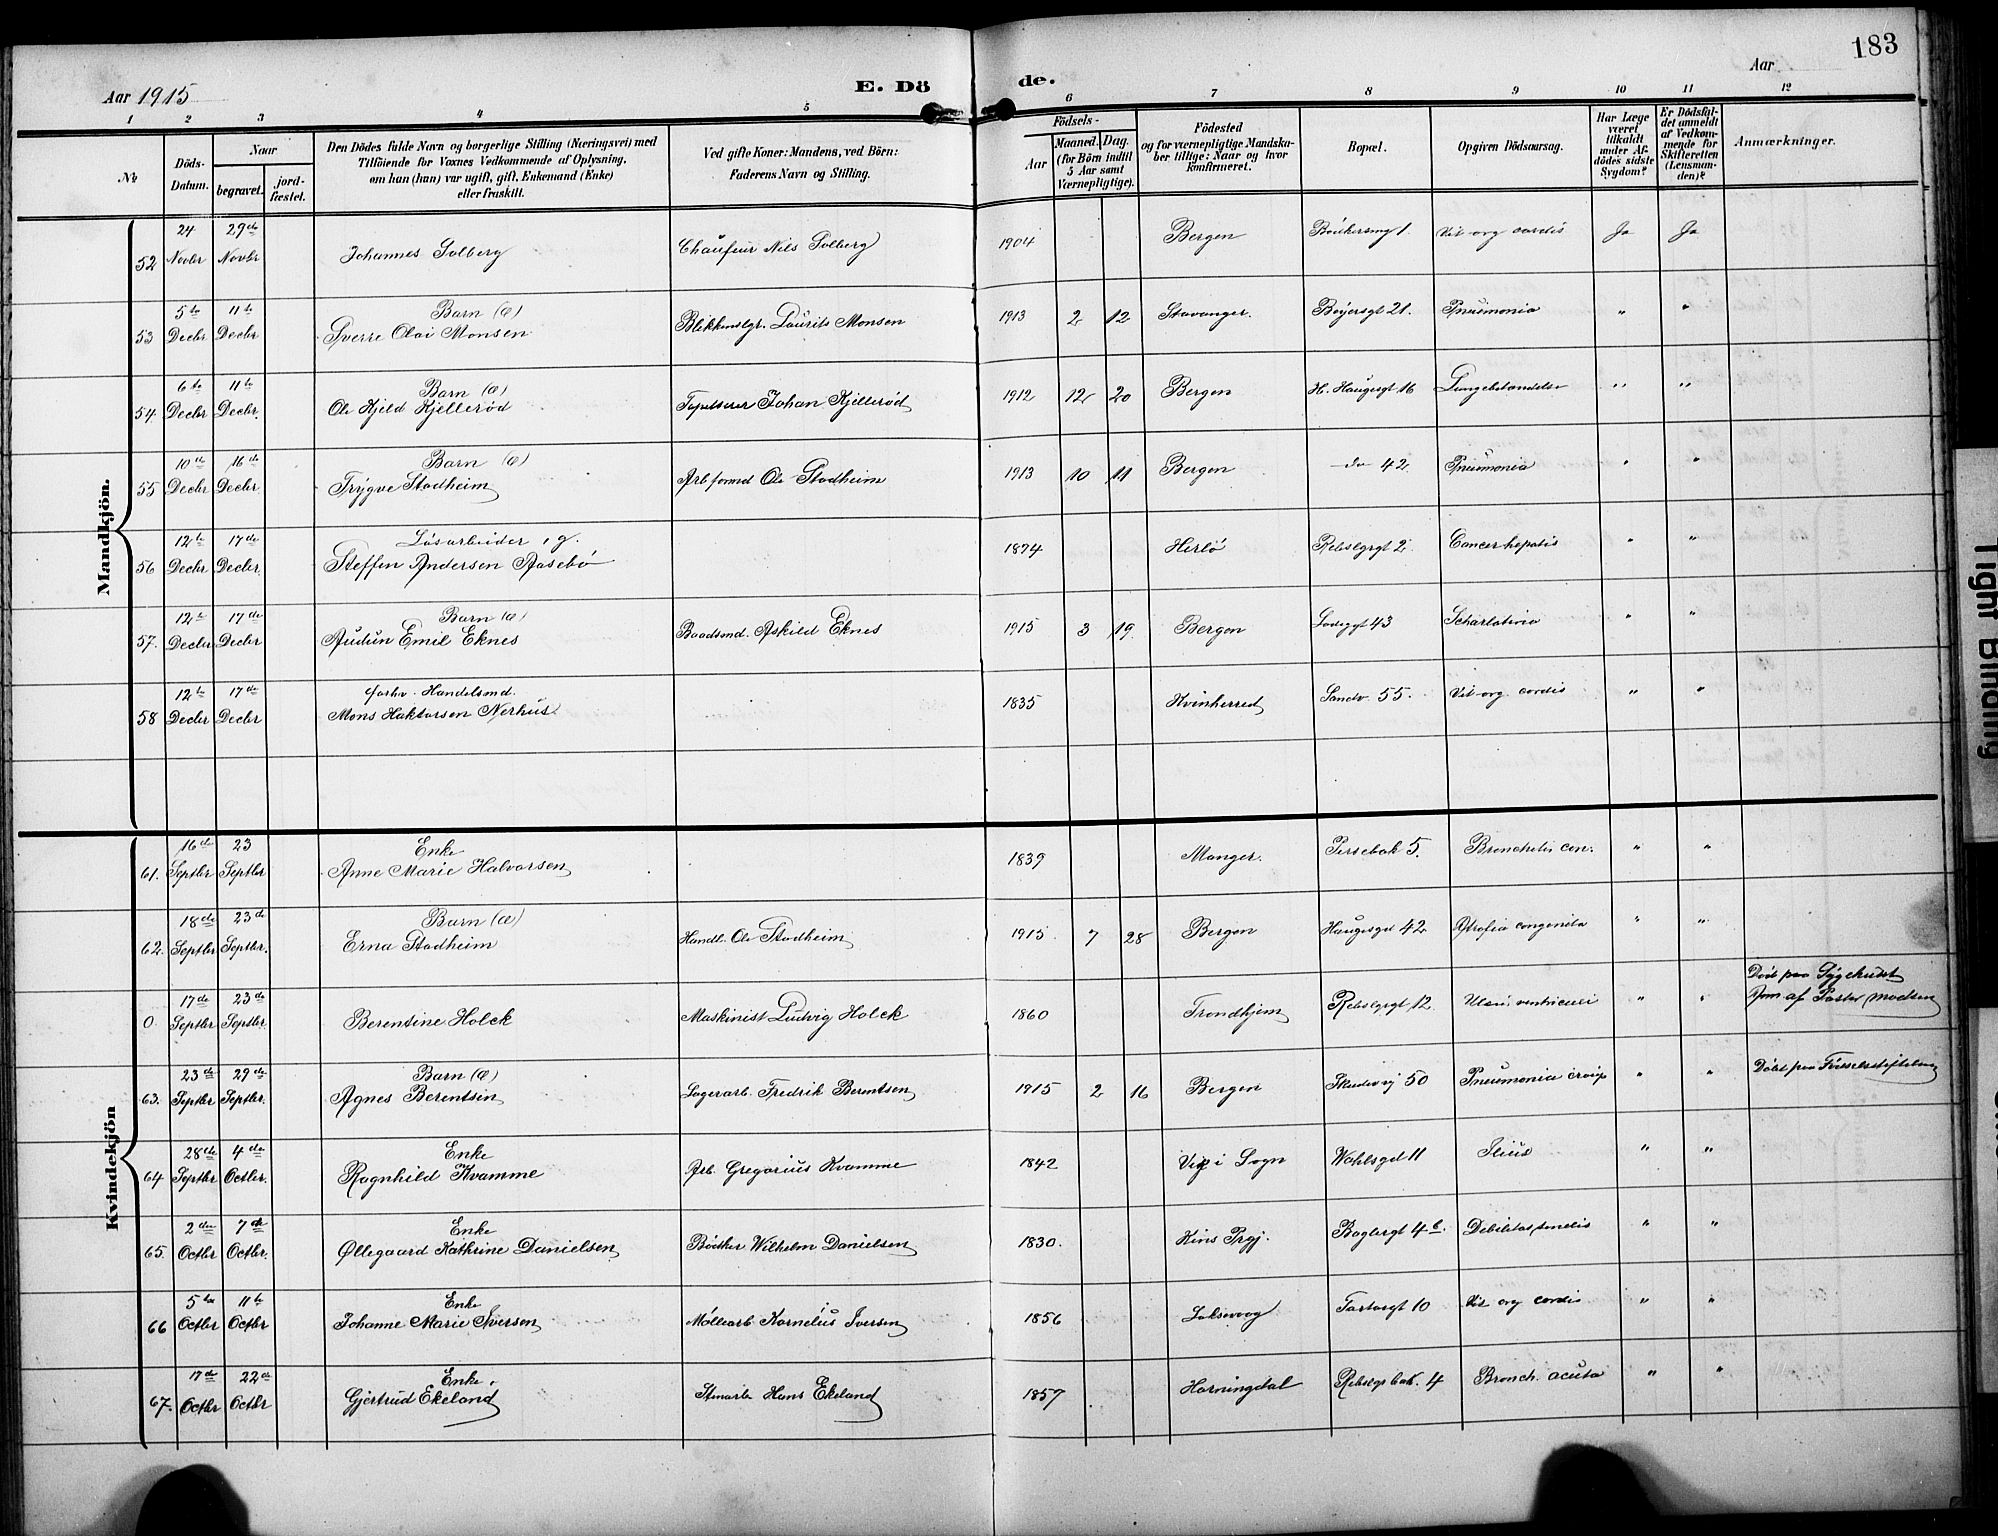 183
Aar 1915
E. Dö
de.
Aar
1 2 3 4 5 6 7 8 9 10 11 12
No
Döds-Datum.
Naar
begravet.
jord-fæstet.
Den Dödes fulde Navn og borgerlige Stilling (Næringsvei) med
Tilföiende for Voxnes Vedkommende af Oplysning,
om han (hun) var ugift, gift, Enkemand (Enke)
eller fraskilt.
Ved gifte Koner: Mandens, ved Börn:
Faderens Navn og Stilling.
Födsels-
Aar
Maaned. Dag.
(for Börn indtil
5 Aar samt
Værnepligtige).
Födested
og for værnepligtige Mandska-
ber tillige: Naar og hvor
konfirmeret.
Bopæl.
Opgiven Dödsaarsag.
Har Læge
været
tilkaldt
under Af-
dödes sidste
Sygdom?
Er Dödsfal-
det anmeldt
af Vedkom-
mende for
Skifteretten
(Lensman-
den)?
Anmærkninger.
Mandkjön.
52 24 Novbr 29de Novbr Johannes Solberg Chaufeur Nils Solberg 1904 Bergen 1. Vit org cordis Ja Ja
53 5te Decbr 11te Decbr Barn (Æ) Sverre Olai Monsen Blikkenslgr. Laurits Monsen 1913 2 12 Stavanger. Böjersgt 21. Pneumonia " "
54. 6te Decbr 11te Decbr. Barn (Æ) Ole Kjeld Kjellerød Tapetserer Johan Kjellerød 1912 12 20 Bergen H. Haugesgt 16 Lungebetændelse " "
55 10de Decbr 16de Decbr Barn (Æ) Trygve Stadheim Arbformd Ole Stadheim 1913 10 11 Bergen do 42 Pneumonia " "
56 12te Decbr 17de Decbr. Løsarbeider, g. Steffen Andersen Aasebø 1874 Herlö Rebslgrgt 2 Cancer hepatis " "
57. 12te Decbr 17de Decbr Barn (Æ) Audun Emil Eknes Baadsmd. Askild Eknes 1915 3 19 Bergen 43 Scharlatina " "
58 12te Decbr 17de Decbr forhv. Handelsmd. Mons Haktorsen Nerhus 1835 Kvinherred Sandv. 55. Vit. org. cordis " "
Kvindekjön
61. 16de Septbr 23 Septbr Enke Anne Marie Halvorsen 1839 Manger. Persebak 5. Bronchitis con. " "
62. 18de Septbr 23de Septbr. Barn (Æ) Erna Stadheim Handl. Ole Stadheim 1915. 7 28 Bergen Haugesgd 42 Atrofia congenita " "
0. 17de Septbr 23de Septbr. Berentine Holck Maskinist Ludvig Holck 1860 Trondhjem Rebslgrgt 12 Ulcus ventriculi " " Død paa Sygehuset Anm af Pastor Madsen
63. 23de Septbr 29de Septbr. Barn (Æ) Agnes Berentsen Lagerarb. Fredrik Berentsen 1915 2 16 Bergen Skudevig 50 Pneumonia croup " " Döbt paa Födselsstiftelsen
64 28de Septbr 4de Octbr. Enke Ragnhild Kvamme Arb. Gregorius Kvamme 1842 Vik i Sogn Wahlsgd 11 Ileus " "
65. 2den Octbr 7de Octbr. Enke Øllegaard Kathrine Danielsen Bödker Wilhelm Danielsen 1830. Kins Prgj. Baglergt 4b. Debilitas senilis " "
66 5te Octbr 11te Octbr Enke Johanne Marie Iversen Møllearb Kornelius Iversen 1856 Laksevaag Tartargt 10 Vit org cordis " "
67. 17de Octbr 22de Octbr Enke. Gjertrud Ekeland Stenarb Hans Ekeland 1857 Horningdal Rebslgr bak. 4 Bronch. acuta " "
Tight Binding